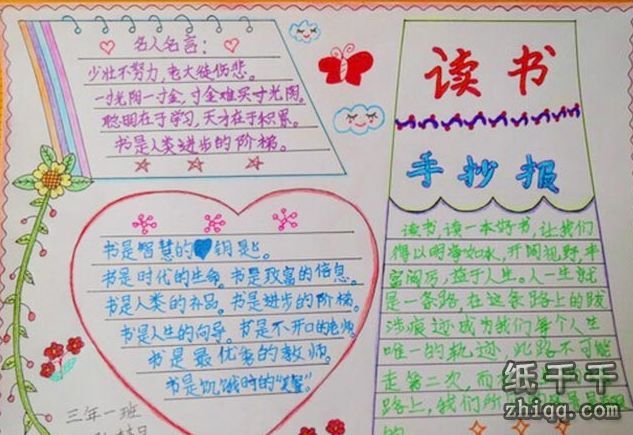 名人名言：
少壮不努力，老大徒伤悲。
一寸光阴一寸金，寸金难买寸光阴。
聪明在于学习，天才在于积累。
书是人类进步的阶梯。
读书
手抄报
书是智慧的钥匙。
书是时代的生命。书是致富的信息。
书是人类的补品。书是进步的阶梯。
书是人生的向导。书是不开口的老师。
书是最优秀的教师。
书是饥饿时的
读书，读一本好书，让我们
得以明净如水，开阔视野，丰
富阅历，益于人生。人一生就
是一条路，在这条路上的跋
涉痕迹成为我们每个人生
唯一的轨迹，此路不可能
走第二次，而在
路上，我们所
的
三年一班
纸千千
zhiqq.com